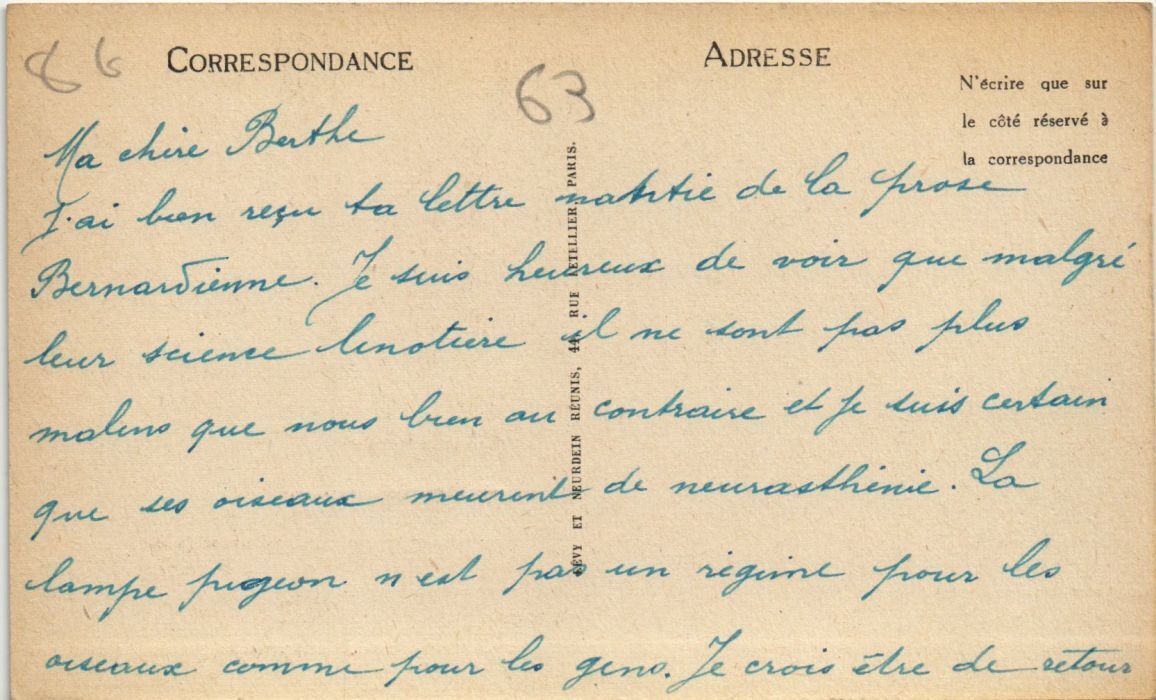 86
CORRESPONDANCE
63
ADRESSE
N'écrire que sur
le côté réservé à
la correspondance
LÉVY ET NEURDEIN RÉUNIS, 44, RUE LETELLIER, PARIS.
Ma chère Berthe
J'ai bien reçu ta lettre de la prose
Bernardienne. Je suis heureux de voir que malgré
leur science il ne sont pas plus
malins que nous bien au contraire et je suis certain
que ses oiseaux meurent de neurasthénie. La
lampe pigeon n'est pas un régime pour les
oiseaux comme pour les gens. Je crois être de retour